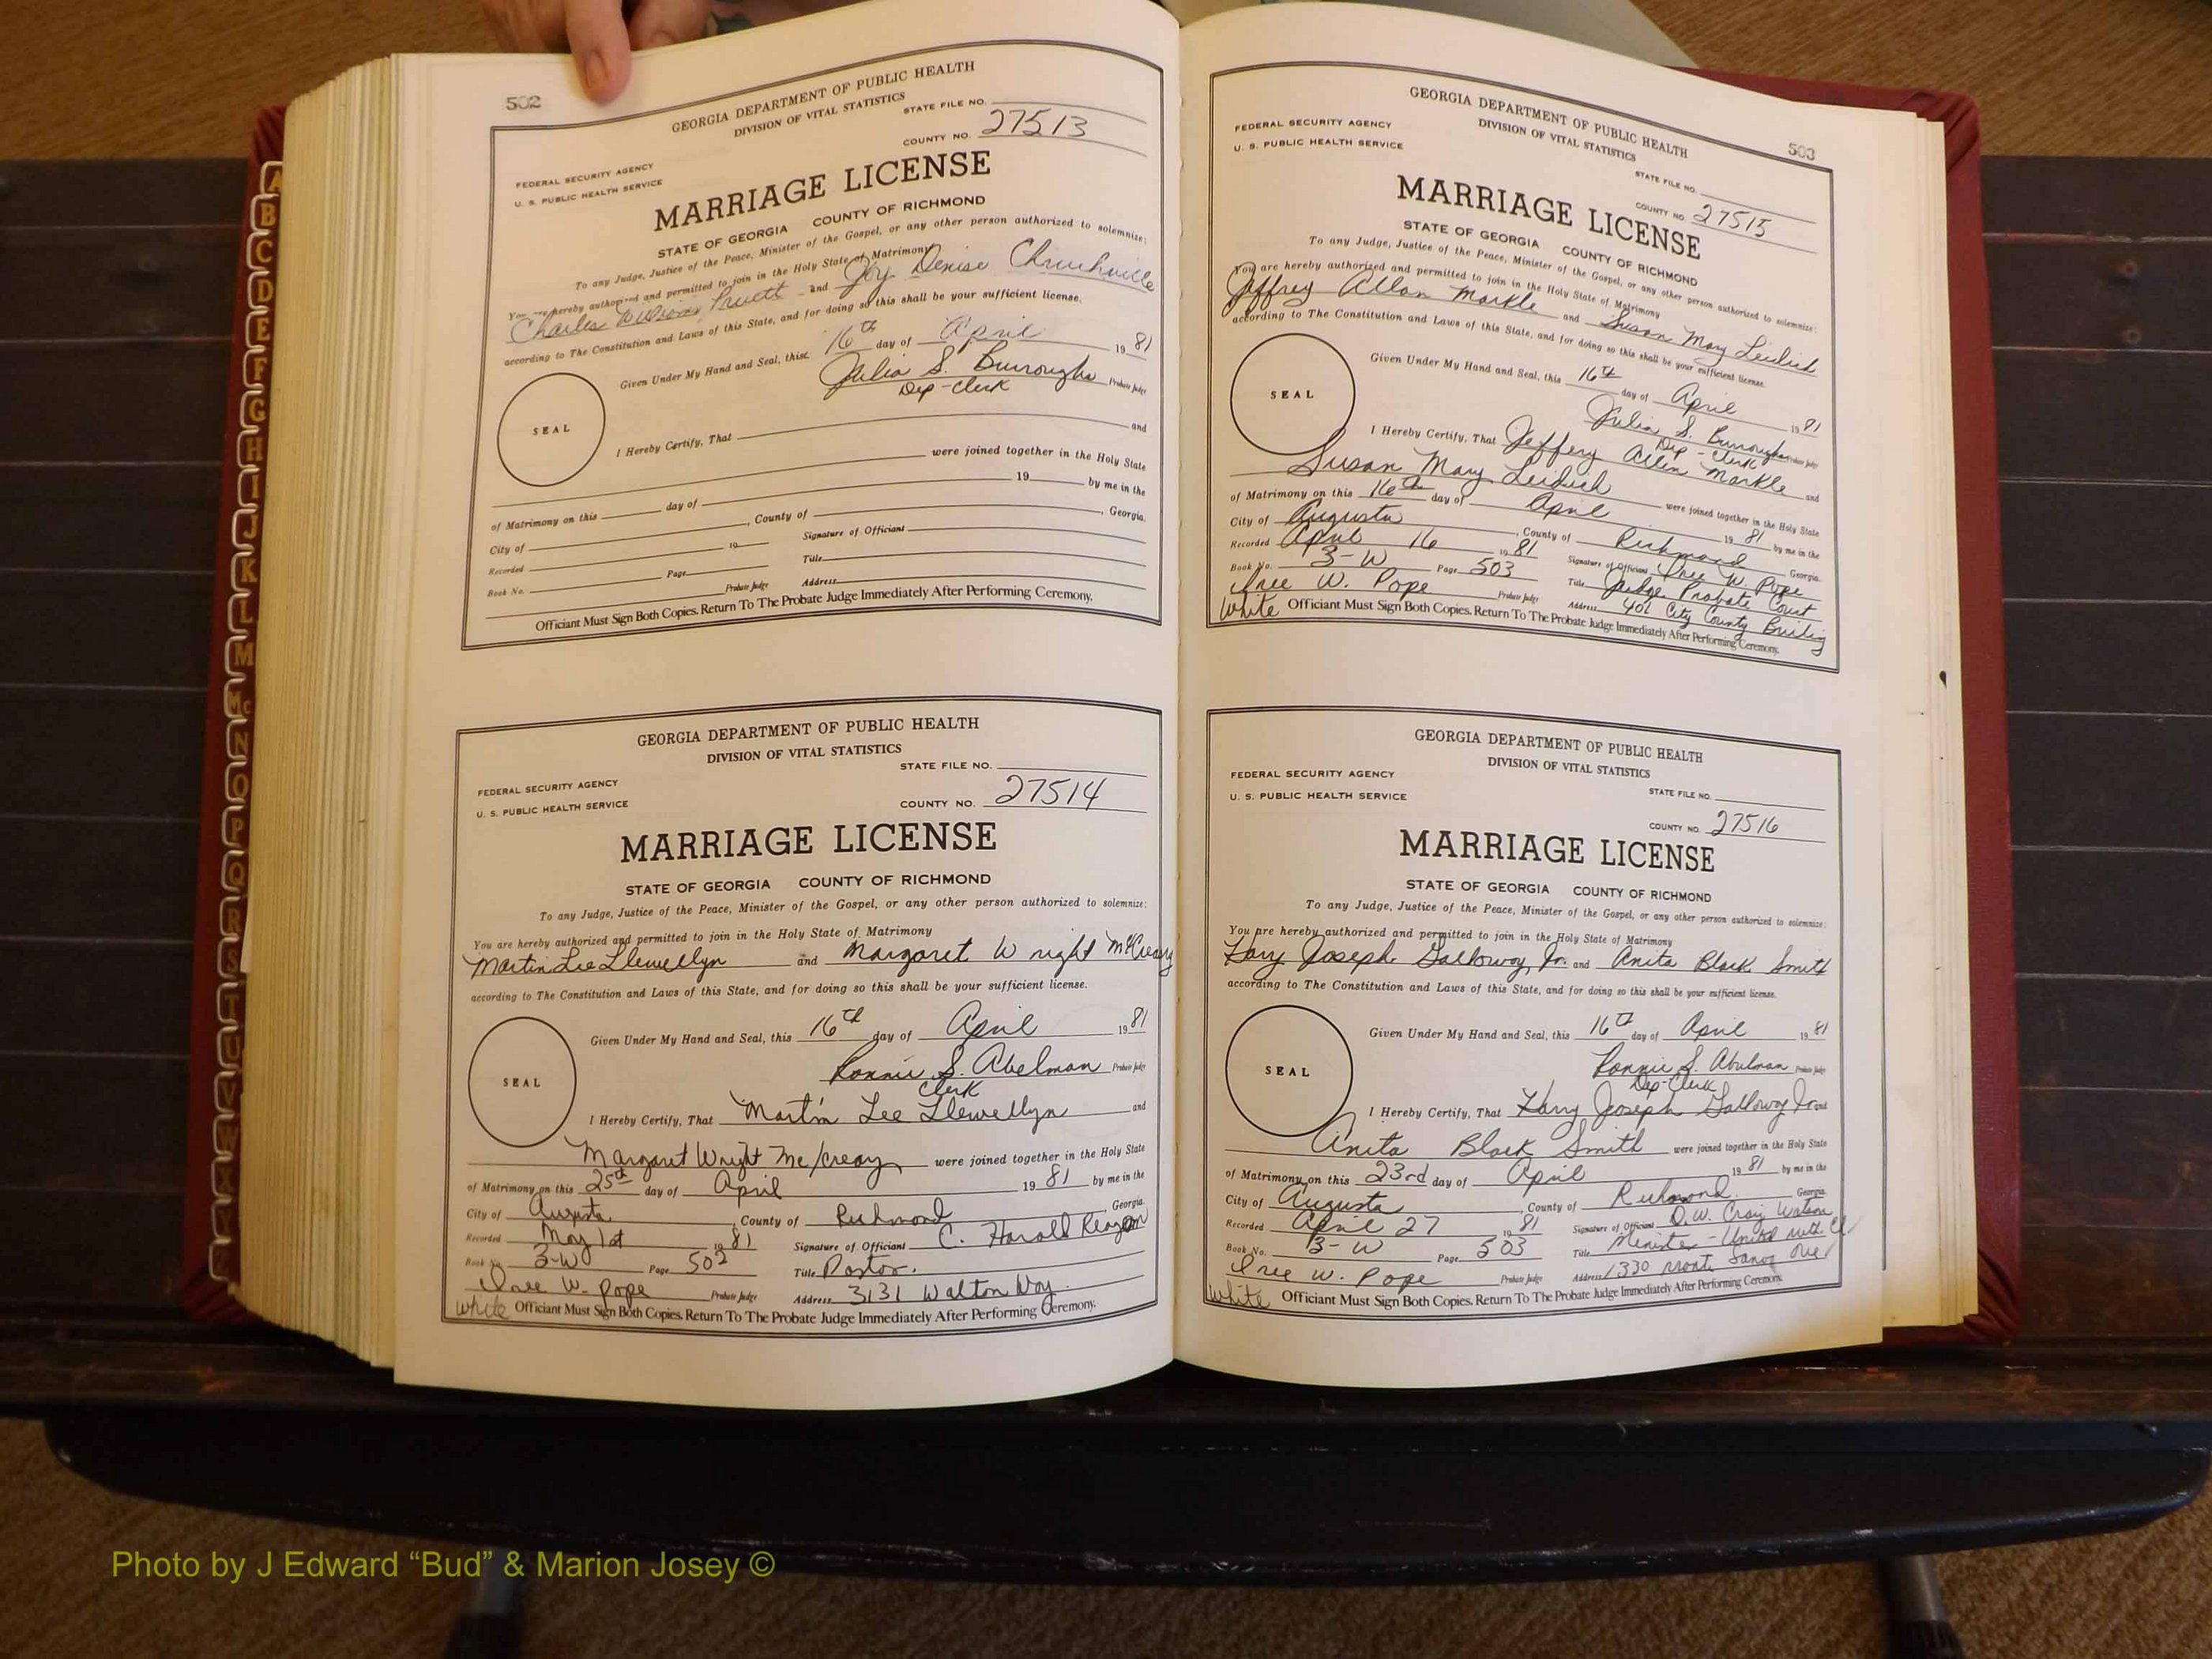 502
GEORGIA DEPARTMENT OF PUBLIC HEALTH
DIVISION OF VITAL STATISTICS
STATE FILE NO.
COUNTY NO. 27513
FEDERAL SECURITY AGENCY
U. S. PUBLIC HEALTH SERVICE
MARRIAGE LICENSE
STATE OF GEORGIA COUNTY OF RICHMOND
To any Judge, Justice of the Peace, Minister of the Gospel, or any other person authorized to solemnize:
You are hereby authorized and permitted to join in the Holy State of Matrimony
Charles William Pruett and Joy Denise
according to The Constitution and Laws of this State, and for doing so this shall be your sufficient license.
Given Under My Hand and Seal, this 16th day of April 1981
Julia S. Burroughs Probate Judge
Dep-Clerk
SEAL
I Hereby Certify, That and
were joined together in the Holy State
of Matrimony on this day of 19 by me in the
City of , County of , Georgia.
Recorded 19 Signature of Officiant
Book No. Page Title
Probate Judge Address
Officiant Must Sign Both Copies. Return To The Probate Judge Immediately After Performing Ceremony.
GEORGIA DEPARTMENT OF PUBLIC HEALTH
DIVISION OF VITAL STATISTICS
STATE FILE NO.
FEDERAL SECURITY AGENCY
U. S. PUBLIC HEALTH SERVICE
COUNTY NO. 27514
MARRIAGE LICENSE
STATE OF GEORGIA COUNTY OF RICHMOND
To any Judge, Justice of the Peace, Minister of the Gospel, or any other person authorized to solemnize:
You are hereby authorized and permitted to join in the Holy State of Matrimony
Martin Lee Llewellyn and Margaret Wright McCreary
according to The Constitution and Laws of this State, and for doing so this shall be your sufficient license.
Given Under My Hand and Seal, this 16th day of April 1981
Ronnie S. Abelman Probate Judge
Clerk
SEAL
I Hereby Certify, That Martin Lee Llewellyn and
Margaret Wright McCreary were joined together in the Holy State
of Matrimony on this 25th day of April 1981 by me in the
City of Augusta, County of Richmond Georgia.
Recorded May 1st 1981 Signature of Officiant C. Harold Reagan
Book No. 3-W Page 502 Title Pastor.
W. Pope Probate Judge Address 3131 Walton Way.
White Officiant Must Sign Both Copies. Return To The Probate Judge Immediately After Performing Ceremony.
503
GEORGIA DEPARTMENT OF PUBLIC HEALTH
DIVISION OF VITAL STATISTICS
FEDERAL SECURITY AGENCY
U. S. PUBLIC HEALTH SERVICE
STATE FILE NO.
COUNTY NO. 27515
MARRIAGE LICENSE
STATE OF GEORGIA COUNTY OF RICHMOND
To any Judge, Justice of the Peace, Minister of the Gospel, or any other person authorized to solemnize:
You are hereby authorized and permitted to join in the Holy State of Matrimony
Jeffrey Allan Markle and Susan Mary Leidich
according to The Constitution and Laws of this State, and for doing so this shall be your sufficient license.
Given Under My Hand and Seal, this 16th day of April 1981
Julia S. Burroughs Probate Judge
Dep-Clerk
SEAL
I Hereby Certify, That Jeffery Allen Markle and
Susan Mary Leidich were joined together in the Holy State
of Matrimony on this 16th day of April 1981 by me in the
City of Augusta, County of Richmond Georgia.
Recorded April 16 1981 Signature of Officiant W. Pope
Book No. 3-W Page 503 Title Judge Probate Court
W. Pope Probate Judge Address 401 City County Builing
White Officiant Must Sign Both Copies. Return To The Probate Judge Immediately After Performing Ceremony.
GEORGIA DEPARTMENT OF PUBLIC HEALTH
DIVISION OF VITAL STATISTICS
FEDERAL SECURITY AGENCY
U. S. PUBLIC HEALTH SERVICE
STATE FILE NO.
COUNTY NO. 27516
MARRIAGE LICENSE
STATE OF GEORGIA COUNTY OF RICHMOND
To any Judge, Justice of the Peace, Minister of the Gospel, or any other person authorized to solemnize:
You are hereby authorized and permitted to join in the Holy State of Matrimony
Harry Joseph Galloway, Jr. and Anita Black Smith
according to The Constitution and Laws of this State, and for doing so this shall be your sufficient license.
Given Under My Hand and Seal, this 16th day of April 1981
Ronnie S. Abelman Probate Judge
Dep-Clerk
SEAL
I Hereby Certify, That Harry Joseph Galloway Jr and
Anita Black Smith were joined together in the Holy State
of Matrimony on this 23rd day of April 1981 by me in the
City of Augusta, County of Richmond Georgia.
Recorded April 27 1981 Signature of Officiant D. W. Craig Watson
Book No. 3-W Page 503 Title Minister - United
W. Pope Probate Judge Address 1330
White Officiant Must Sign Both Copies. Return To The Probate Judge Immediately After Performing Ceremony.
A
B
C
D
E
F
G
H
I
J
K
L
M
Mc
N
O
P
Q
R
S
T
U
V
W
Photo by J Edward “Bud” & Marion Josey ©